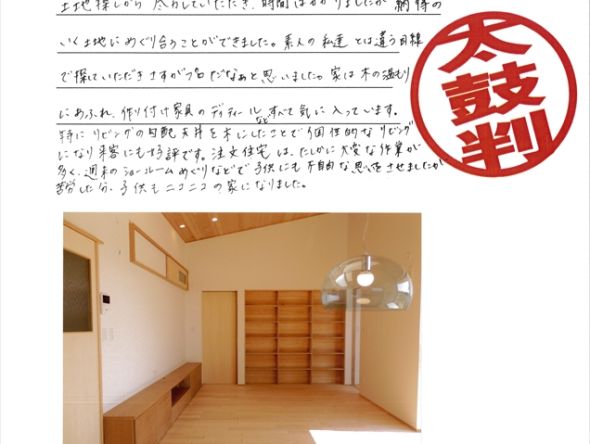 土地探しから尽力していただき、時間はかかりましたが納得の
いく土地にめぐり合うことができました。素人の私達とは違う目線
で探していただきさすがプロだなぁと思いました。家は木の温もり
にあふれ、作り付け家具のディティールなどすべて気に入っています。
特にリビングの勾配天井を木にしたことで個性的なリビング
になり来客にも好評です。注文住宅は、たしかに大変な作業が
多く、週末のショールームめぐりなどで子供にも不自由な思いをさせましたが
苦労した分、子供もニコニコの家になりました。
太鼓判